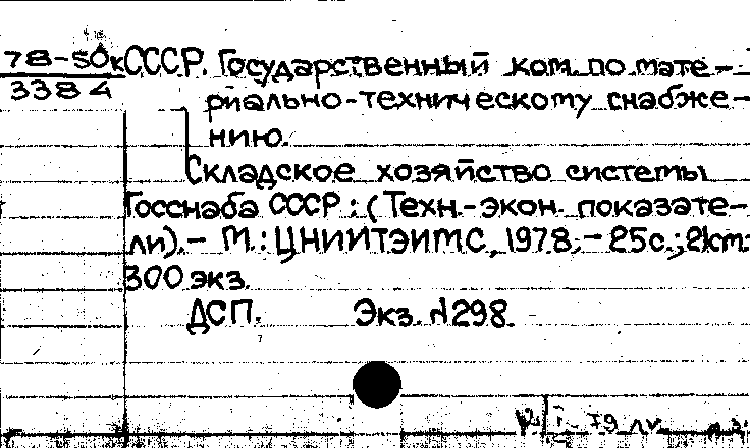 78-50к СССР. Государственный ком. по мате-
3384 риально-техническому снабже-
нию.
Складское хозяйство системы
Госснаба СССР : (Техн.-экон. показате-
ли). - М. : ЦНИИТЭИМС, 1978. - 25с.; 21см.
300 экз.
ДСП. Экз. №298.
79